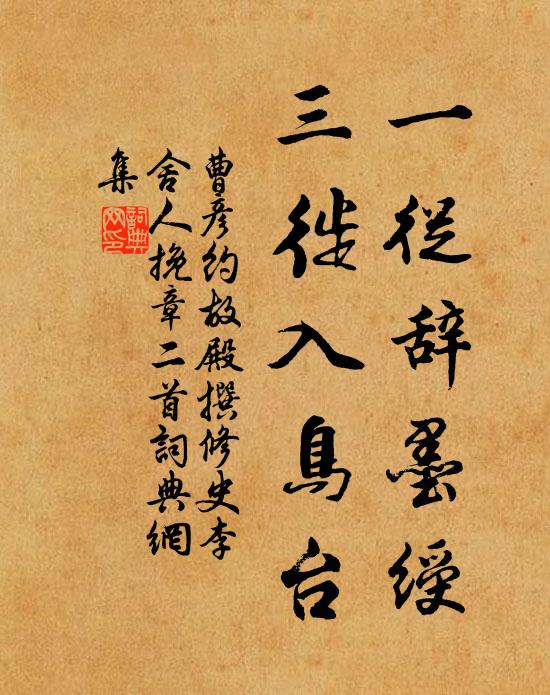 一從辞墨綬
三徙入烏台
曹彥約故殿撰修史李
舍人挽章二首詞典網
集
詞典網印